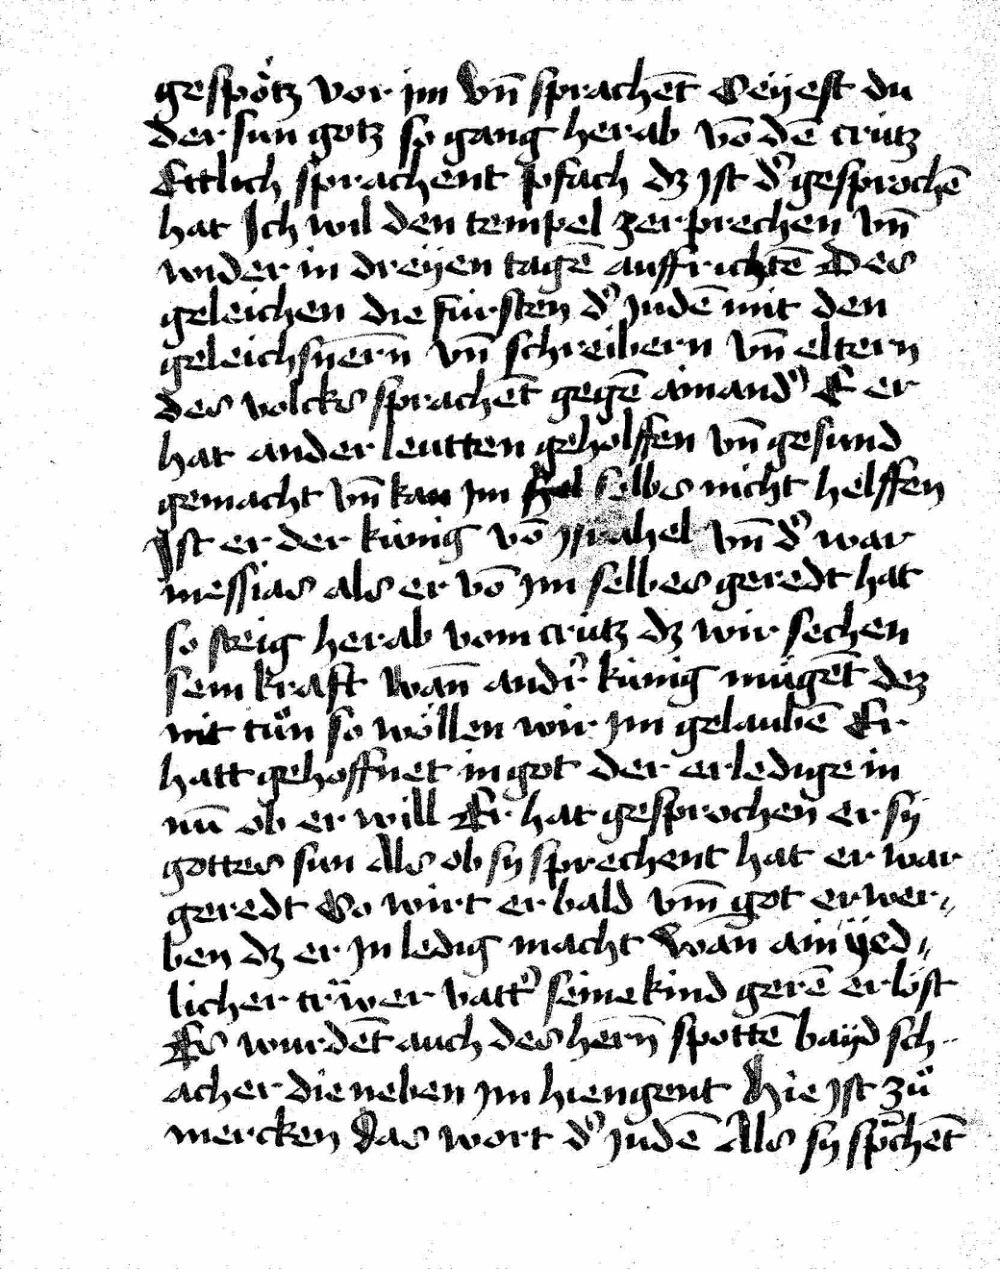 gespötz vor im Vn̄ sprachēt Seÿest du
der sun gotz so gang herab vō dē crütz
Ettlich sprachent pfach dz ist dʾ gesprochē
hat Ich wil den tempel zerprechen Vn̄
wider in dreÿen tagē auffrichtē Des
geleichen die fürsten dʾ Judē mit den
geleichsnern̄ vn̄ schreibern vn̄ eltern
des volcks sprachēt gegē ainandʾ Er
hat ander leutten geholffen vn̄ gesund
gemacht vn̄ kan im selbs nicht helffen
Ist er der künig vō israhel vn̄ dʾ war
messias als er vō im selbes geredt hat
so steig herab vom crütz dz wir sechen
sein kraft Wan̄ andʾr künig mügēt dez
nit tůn so wöllen wir im gelaubē Er
hatt gehoffnet in got der erledige in
nū ob er will Er hat gesprochen er sÿ
gottes sun Als ob sÿ sprechent hat er war
geredt So wirt er bald vm̄ got erwer⸗
ben dz er in ledig macht Wan̄ ain ÿed⸗
licher trüwer vattʾ seine kind gerē erlöst
Es wurdēt auch des hern̄ spottē baÿd sch⸗
acher die neben im hiengent Hie ist zů
mercken das wort dʾ judē Als sÿ sp̄chēt